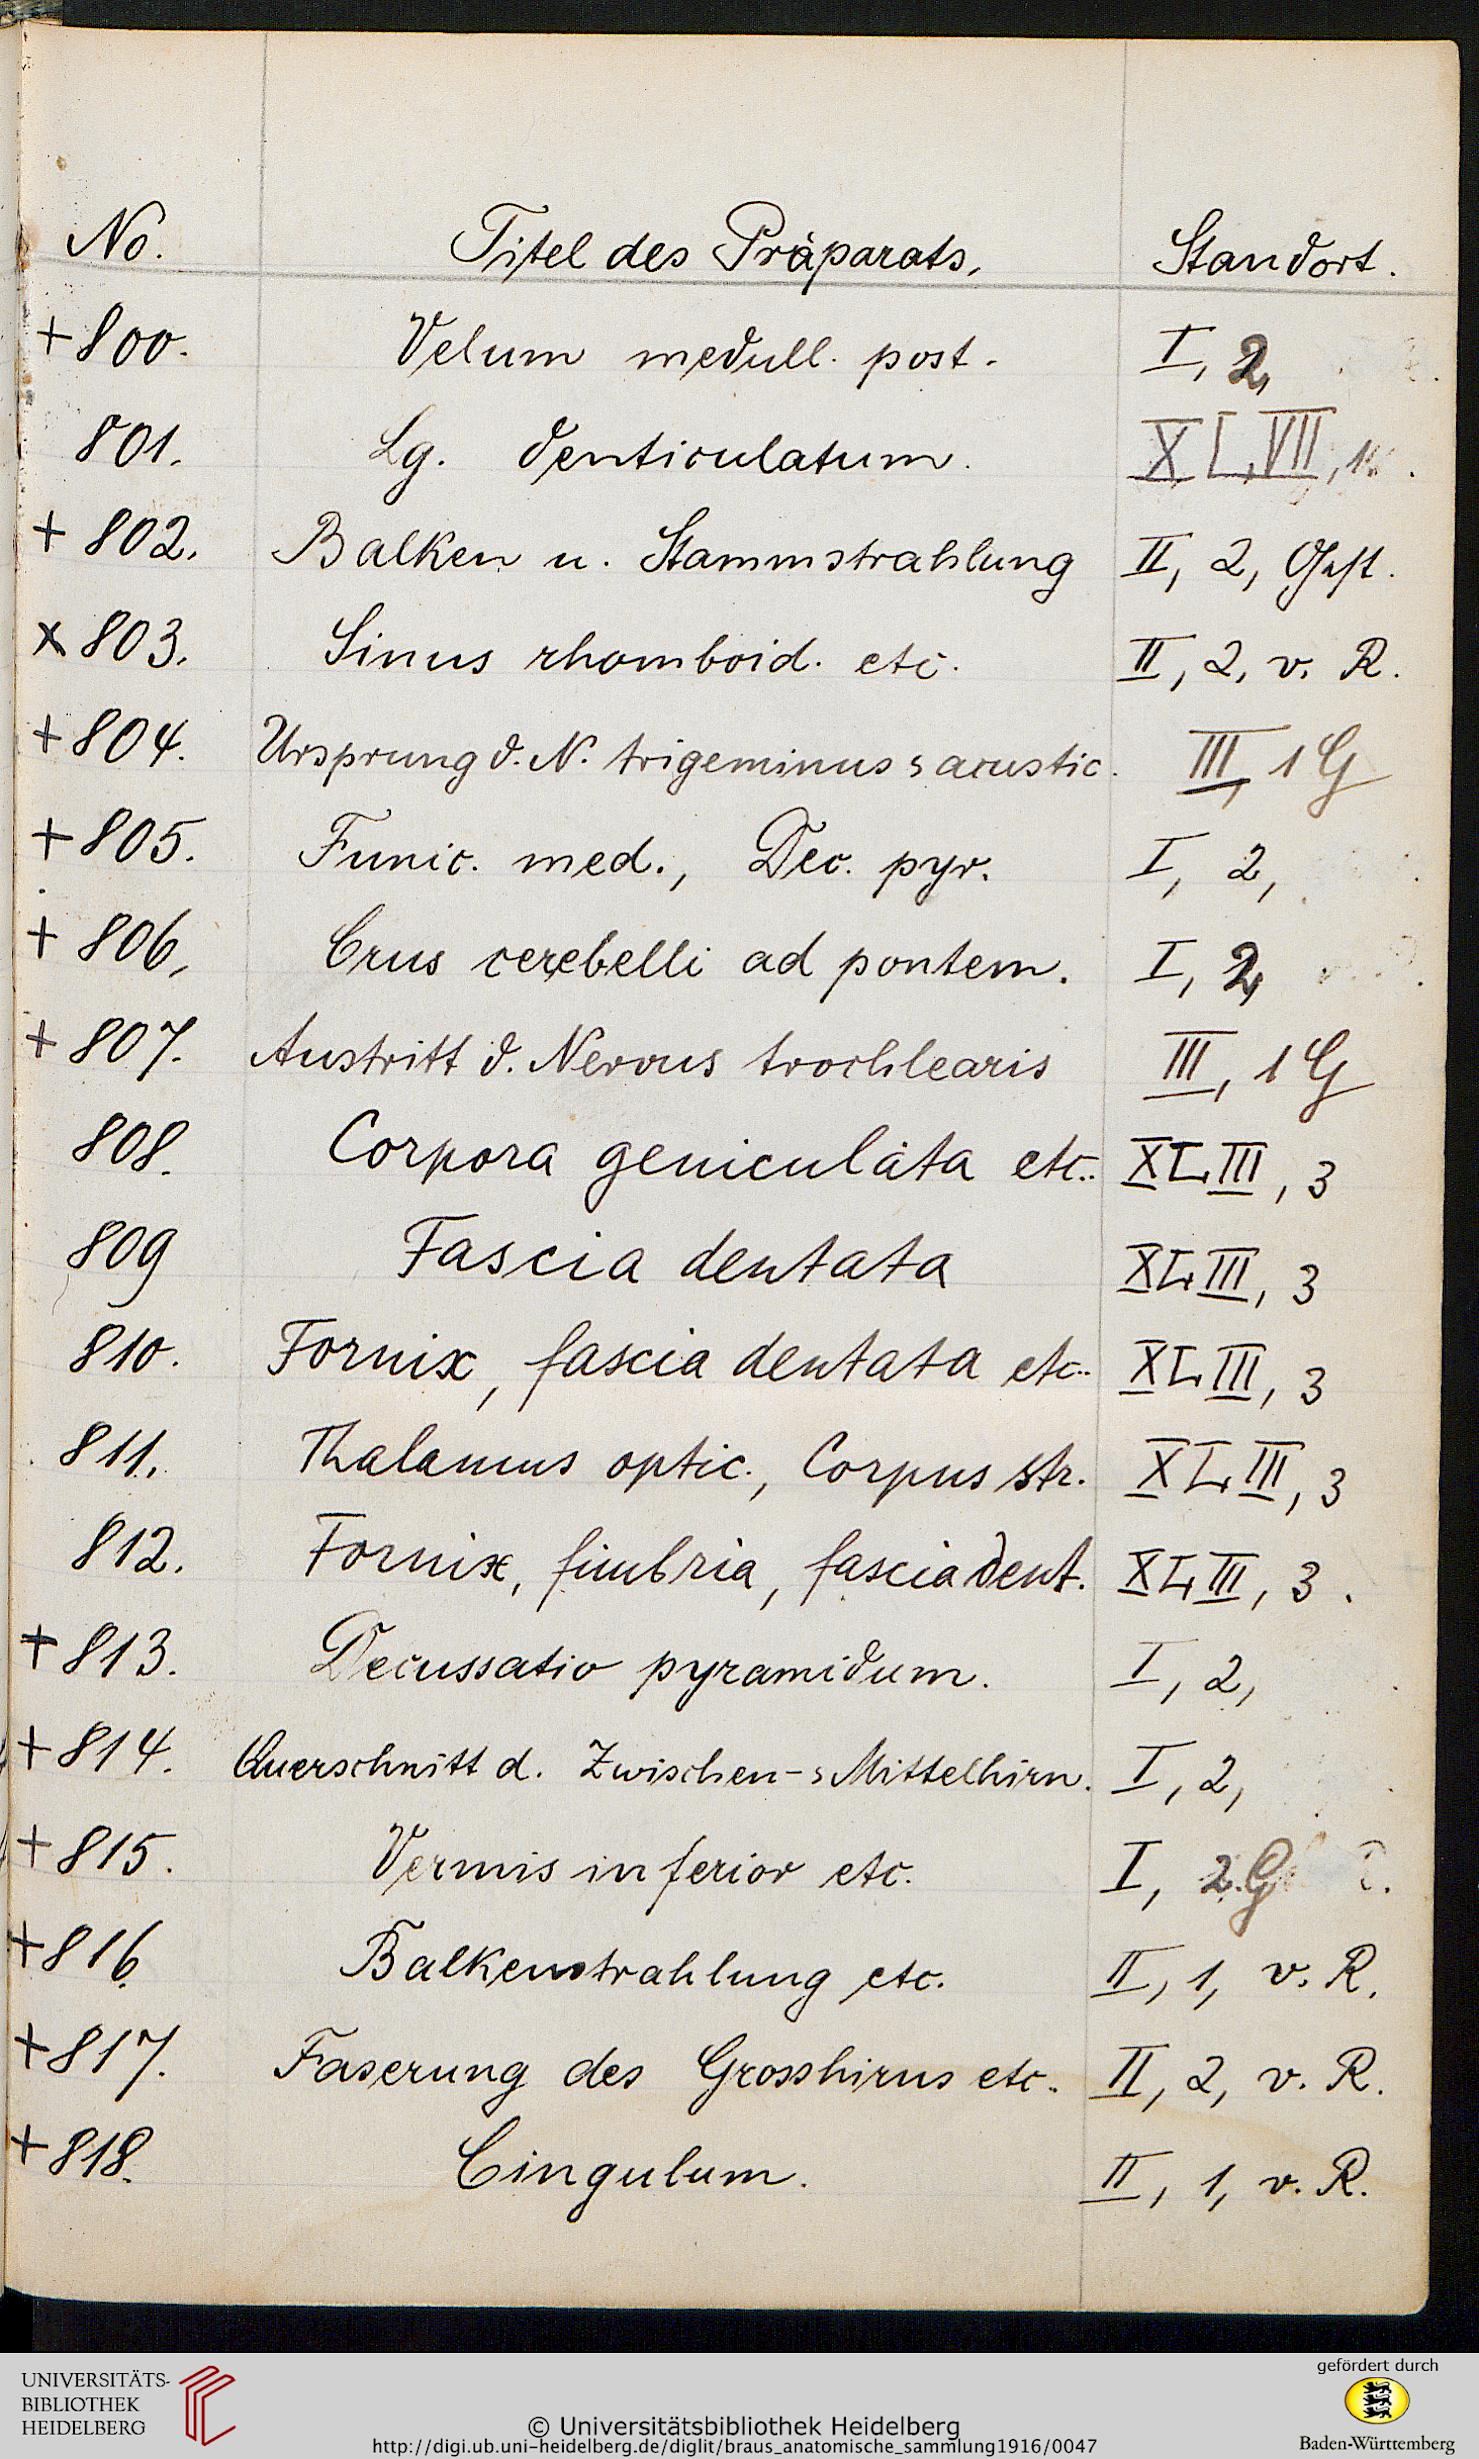 No. Titel des Präparats. Standort.
+ 800. Velum medull. post. I, 2,
801. Lg. denticulatum. XLVII, 1
+ 802. Balken u. Stammstrahlung II, 2,
x 803. Sinus rhomboid. etc. II, 2, v. R.
+ 804. Ursprung d. N. trigeminus s acustic. III, 1 G
+ 805. Funic. med., Dec. pyr. I, 2,
+ 806, Crus cerebelli ad pontem. I, 2,
+ 807. Austritt d. Nervus trochlearis III, 1 G
808. Corpora geniculata etc. XLIII, 3
809 Fascia dentata XLIII, 3
810. Fornix, fascia dentata etc. XLIII, 3
811. Thalamus optic., Corpus str. XLIII, 3
812. Fornix, fimbria, fascia dent. XLIII, 3.
+ 813. Decussatio pyramidum. I, 2,
+ 814. Querschnitt d. Zwischen- s Mittelhirn. I, 2,
+ 815. Vermis inferior etc. I, 2. G
+ 816. Balkenstrahlung etc. II, 1, v. R.
+ 817. Faserung des Grosshirns etc. II, 2, v. R.
+ 818. Cingulum. II, 1, v. R.
UNIVERSITÄTS-
BIBLIOTHEK
HEIDELBERG
© Universitätsbibliothek Heidelberg
http://digi.ub.uni-heidelberg.de/diglit/braus_anatomische_sammlung1916/0047
gefördert durch
Baden-Württemberg